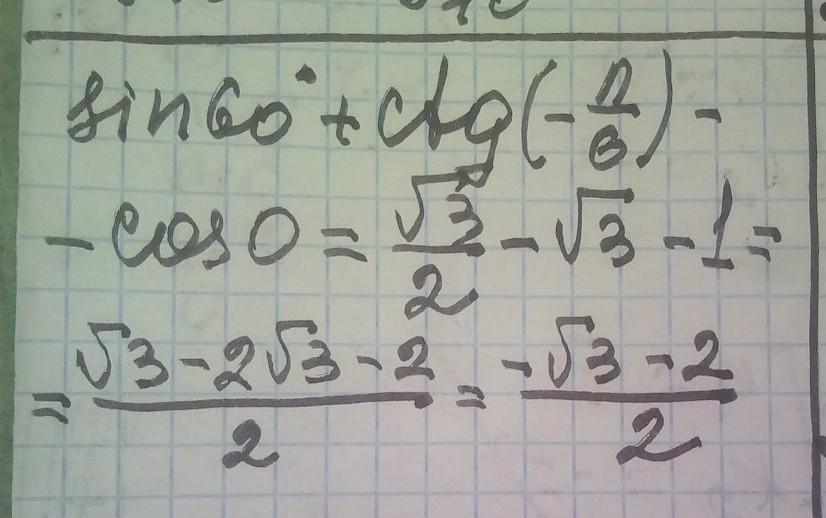 sin60° + ctg(-π/6) -
- cos0 = √3/2 - √3 - 1 =
= √3 - 2√3 - 2/2 = -√3 - 2/2